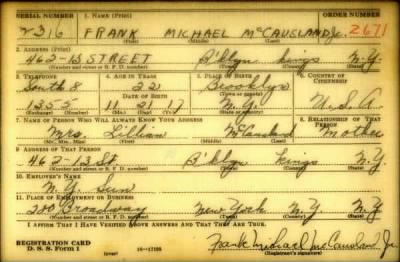 SERIAL NUMBER 1. NAME (Print) ORDER NUMBER
2316 FRANK MICHAEL McCAUSLAND Jr. 2671
(First) (Middle) (Last)
2. ADDRESS (Print)
462-13 STREET B'klyn Kings N.Y.
(Number and street or R. F. D. number) (Town) (County) (State)
3. TELEPHONE 4. AGE IN YEARS 5. PLACE OF BIRTH 6. COUNTRY OF CITIZENSHIP
South 8 22 Brooklyn
DATE OF BIRTH (Town or county)
1355 11 21 17 N.Y. U.S.A.
(Exchange) (Number) (Mo.) (Day) (Yr.) (State or country)
7. NAME OF PERSON WHO WILL ALWAYS KNOW YOUR ADDRESS 8. RELATIONSHIP OF THAT PERSON
Mrs. Lillian McCausland Mother
(Mr., Mrs., Miss) (First) (Middle) (Last)
9. ADDRESS OF THAT PERSON
462-13 St. B'klyn Kings N.Y.
(Number and street or R. F. D. number) (Town) (County) (State)
10. EMPLOYER'S NAME
N.Y. Sun
11. PLACE OF EMPLOYMENT OR BUSINESS
280 Broadway New York N.Y. N.Y.
(Number and street or R. F. D. number) (Town) (County) (State)
I AFFIRM THAT I HAVE VERIFIED ABOVE ANSWERS AND THAT THEY ARE TRUE.
REGISTRATION CARD
D. S. S. Form 1 (over) 16-17105
Frank Michael McCausland Jr.
(Registrant's signature)